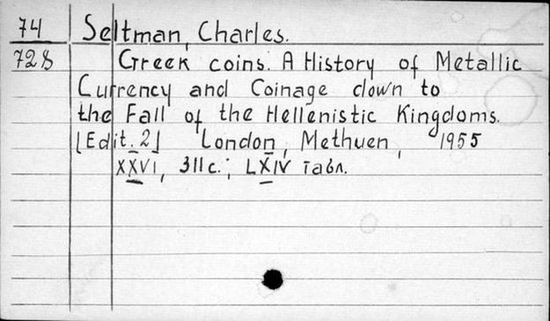 74 Seltman, Charles.
728 Greek coins. A History of Metallic
Currency and Coinage down to
the Fall of the Hellenistic Kingdoms.
[Edit. 2] London, Methuen, 1955
XXVI, 311c.; LXIV табл.